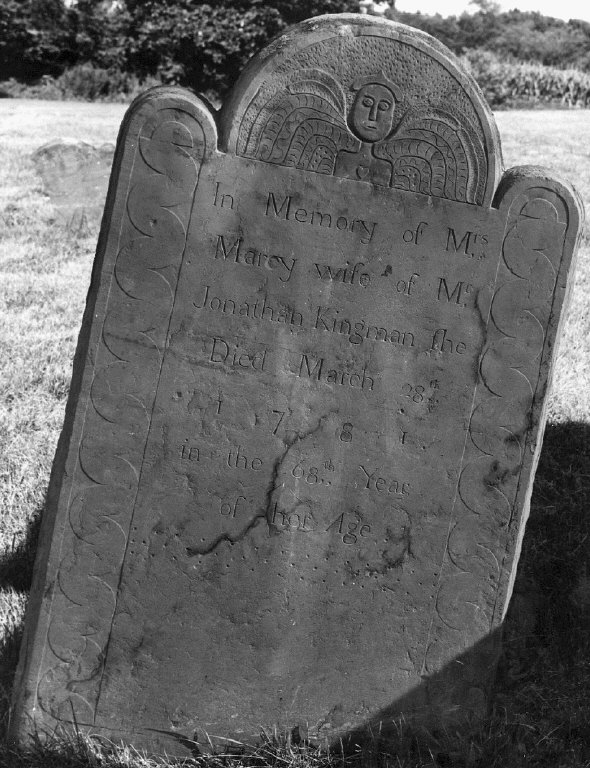 In Memory of Mrs.
Marcy wife of Mr.
Jonathan Kingman ſhe
Died March 28th.
1 7 8 1.
in the 68th. Year
of her Age